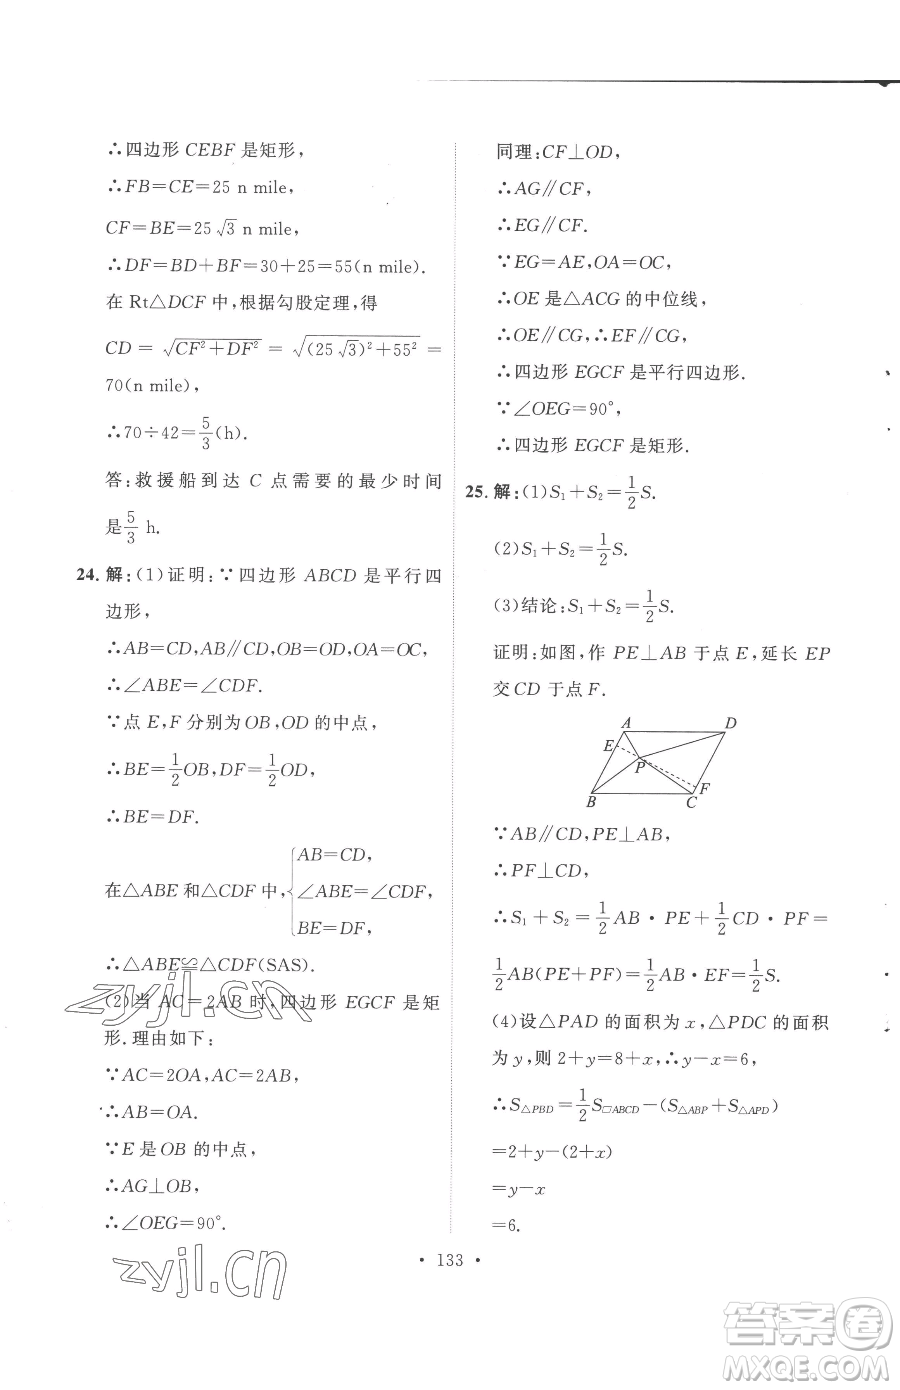 ∴四边形 CEBF 是矩形,
∴FB=CE=25 n mile,
CF=BE=25√3 n mile,
∴DF=BD+BF=30+25=55(n mile).
在 Rt△DCF 中,根据勾股定理,得
CD = √(CF²+DF²) = √((25√3)²+55²) =
70(n mile),
∴70÷42=5/3(h).
答:救援船到达 C 点需要的最少时间
是5/3 h.
24.解:(1)证明:∵四边形 ABCD 是平行四
边形,
∴AB=CD,AB∥CD,OB=OD,OA=OC,
∴∠ABE=∠CDF.
∵点 E,F 分别为 OB,OD 的中点,
∴BE=1/2OB,DF=1/2OD,
∴BE=DF.
在△ABE 和△CDF 中,{AB=CD,
∠ABE=∠CDF,
BE=DF,
∴△ABE≌△CDF(SAS).
(2)当 AC=2AB 时,四边形 EGCF 是矩
形.理由如下:
∵AC=2OA,AC=2AB,
∴AB=OA.
∵E 是 OB 的中点,
∴AG⊥OB,
∴∠OEG=90°.
同理:CF⊥OD,
∴AG∥CF,
∴EG∥CF.
∵EG=AE,OA=OC,
∴OE 是△ACG 的中位线,
∴OE∥CG,∴EF∥CG,
∴四边形 EGCF 是平行四边形.
∵∠OEG=90°,
∴四边形 EGCF 是矩形.
25.解:(1)S₁+S₂=1/2S.
(2)S₁+S₂=1/2S.
(3)结论:S₁+S₂=1/2S.
证明:如图,作 PE⊥AB 于点 E,延长 EP
交 CD 于点 F.
A D
E
P
F
B C
∵AB∥CD,PE⊥AB,
∴PF⊥CD,
∴S₁+S₂=1/2AB·PE+1/2CD·PF=
1/2AB(PE+PF)=1/2AB·EF=1/2S.
(4)设△PAD 的面积为 x,△PDC 的面积
为 y,则 2+y=8+x,∴y-x=6,
∴S△PBD=1/2S▱ABCD-(S△ABP+S△APD)
=2+y-(2+x)
=y-x
=6.
· 133 ·
zyjl.cn
zyjl.cn
答案圈
MXQE.COM